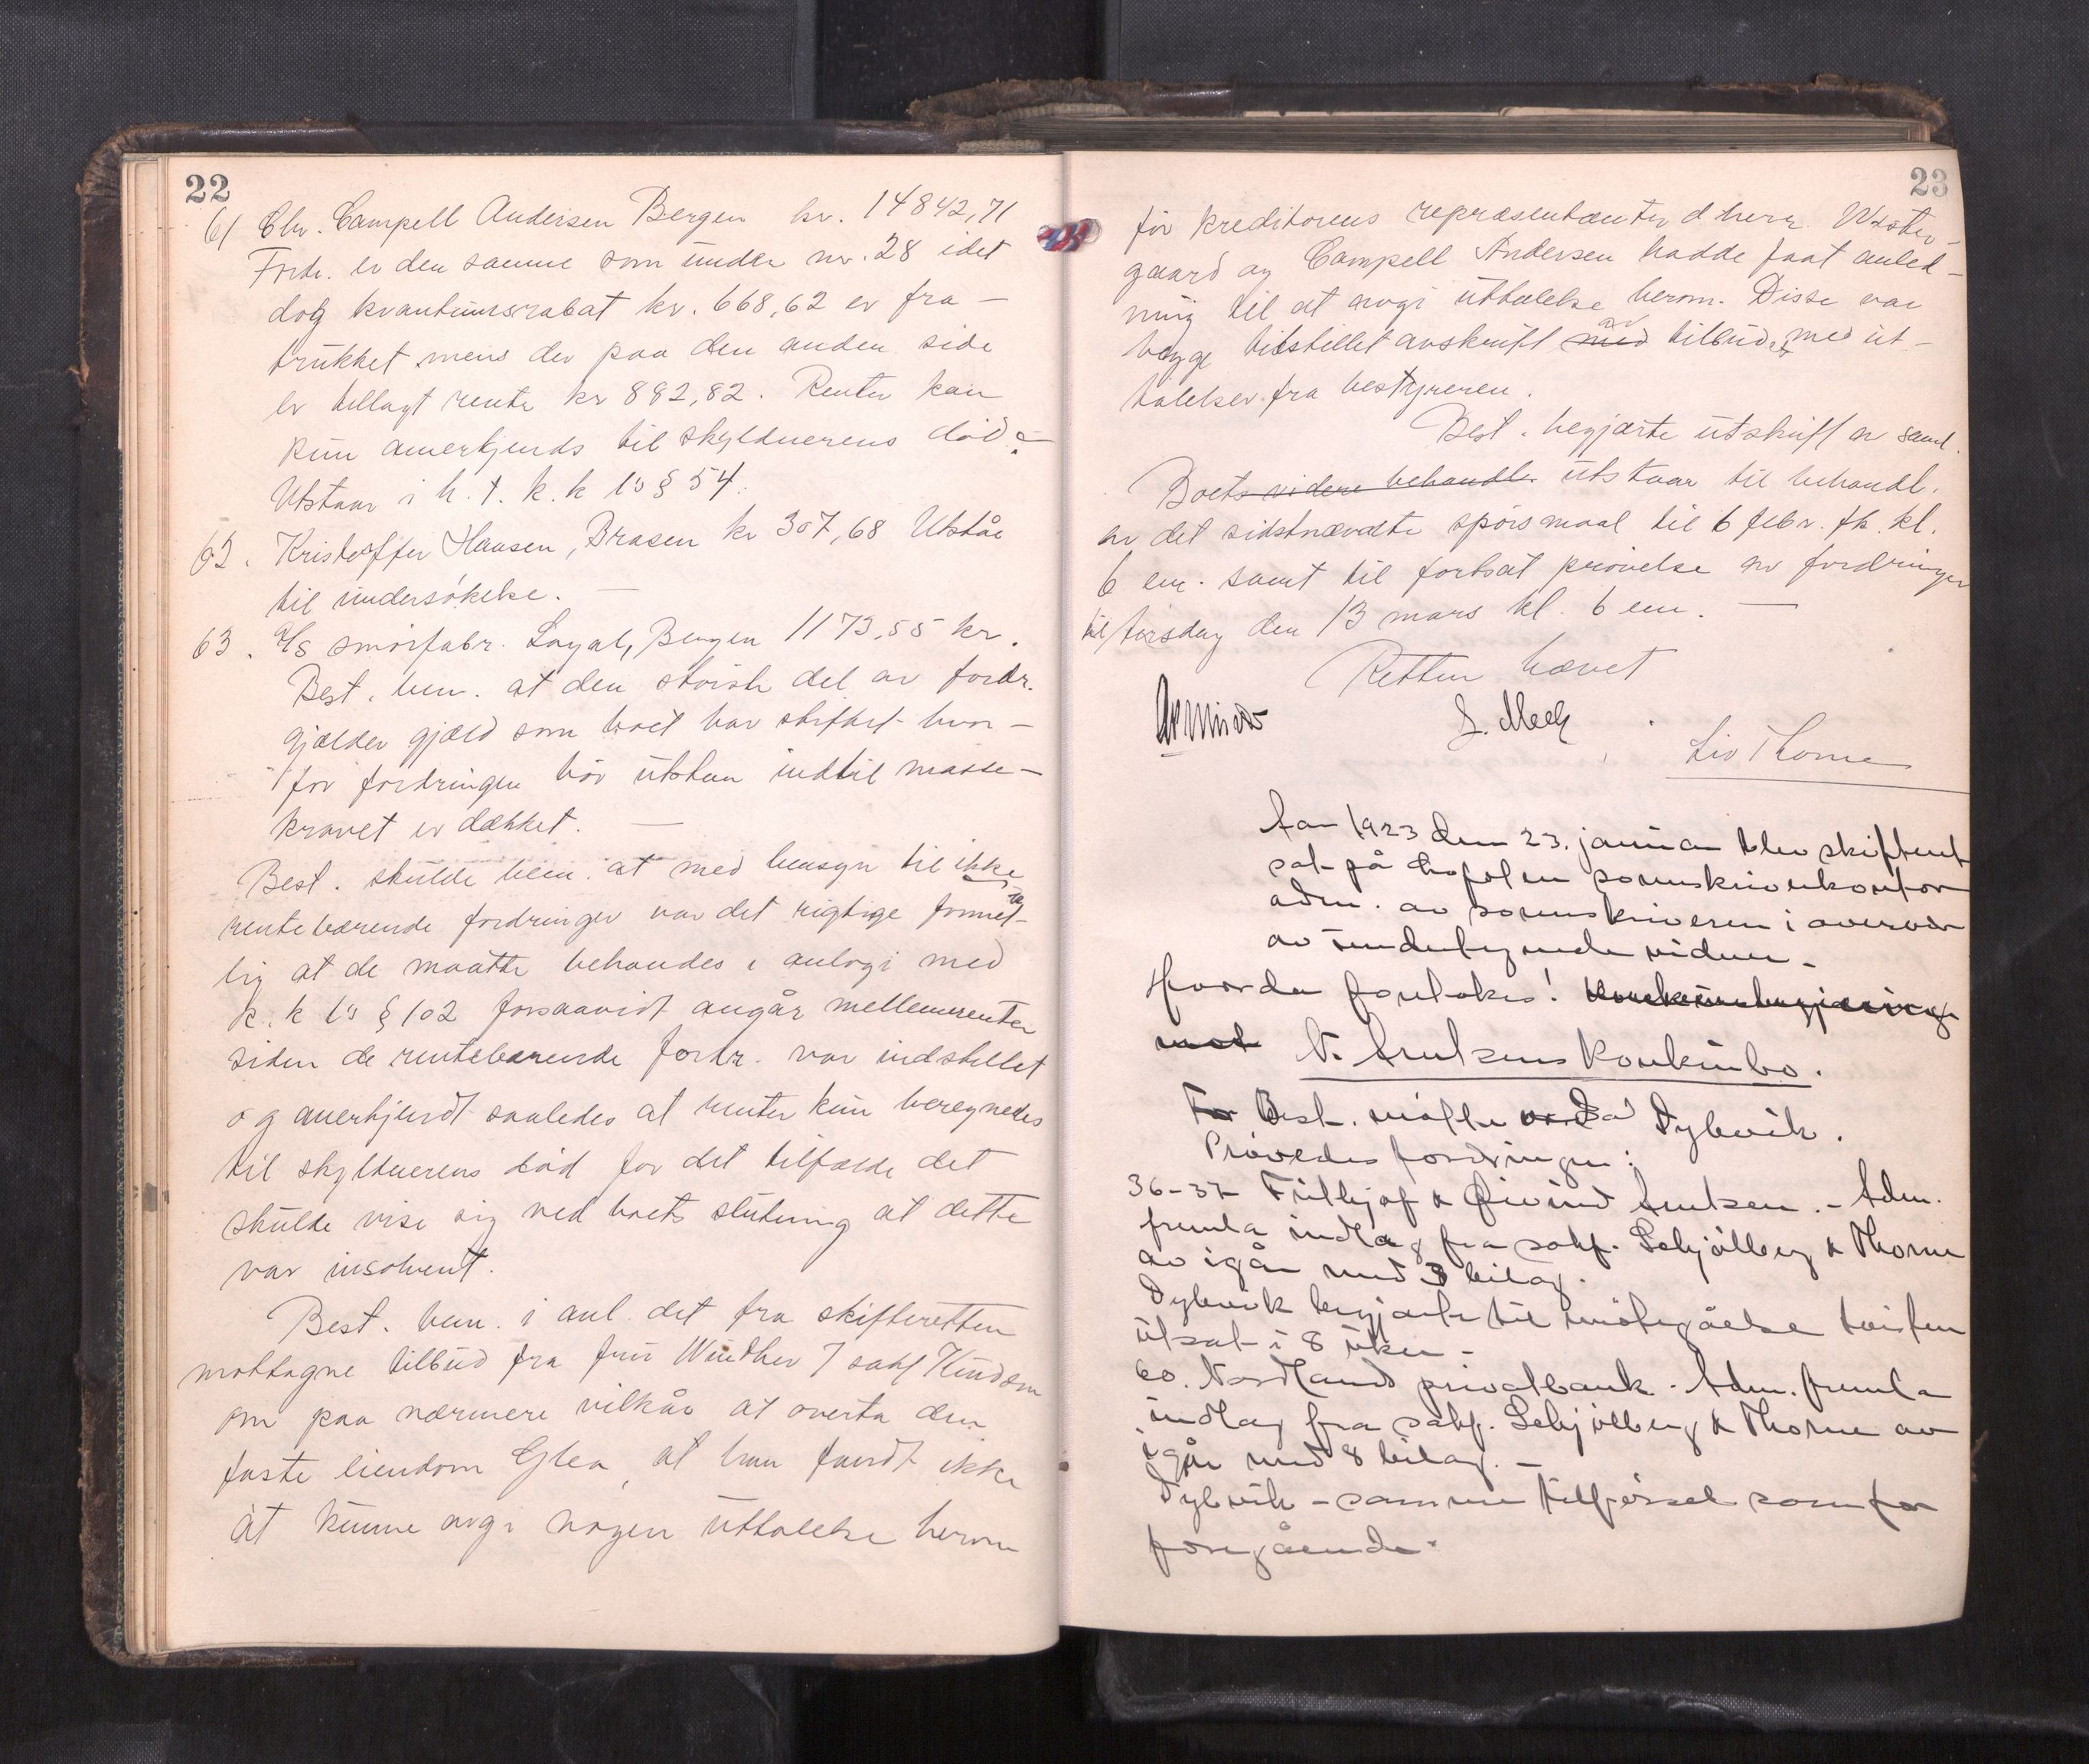 22
61 Chr. Campell Andersen Bergen kr. 14842,71
Fordr. er den samme som under nr. 28 idet
dog kvantumsrabat kr. 668,62 er fra-
trukket mens der paa den anden side
er tillagt rente kr 892,82. Renter kan
kun anerkjends til skyldnerens död.-
Utstaar i h. t. k. k l's § 54.
62. Kristoffer Hansen, Brasen kr 307,68 Utstår
til undersökelse. -
63. A/s smörfabr. Loyal, Bergen 1173,55 kr.
Best. bem. at den störste del av fordr.
gjælder gjæld som boet har stiftet hvor-
for fordringen bör utstaa indtil masse-
kravet er dækket. -
Best. skulde bem. at med hensyn til ikke
rentebærende fordringer var det rigtige formel-
lig at de maatte behandes i anlogi med
k. k l's § 102 forsaavidt angår mellemrenter
siden de rentebærende fordr. var indstillet
og anerkjendt saaledes at renter kun beregnedes
til skyldnerens död for det tilfælde det
skulde vise sig ved boets slutning at dette
var insolvent.
Best. bem. i anl. det fra skifteretten
mottagne tilbud fra fru Winther / sakf
om paa nærmere vilkår at overta den
faste eiendom Glea, at han fandt ikke
at kunne avgi nogen uttalelse herom
23
för kreditorens repræsentanter d herr. Wester-
gaard og Campell Andersen hadde faat anled-
ning til at avgi uttalelse herom. Disse var
begge tilstillet avskrift med av tilbudet med ut-
talelser fra bestyreren.
Best. begjærte utskrift av saml.
Boets videre behandl. utstaar til behandl.
av det sidstnævndte spörsmaal til 6 febr. fk. kl.
6 em. samt til fortsat prövelse av fordringer
til tirsdag den 13 mars kl. 6 em. -
Retten hævet
J. Mech
Liv Thorne
Aar 1923 den 23. januar blev skifteret
sat på sorenskriverkontor
adm. av sorenskriveren i overvær
av undertegnede vidner -
Hvorda foretokes: Konkursbegjæring
mot N. Arntzens konkursbo.
For Best. mötte o.r.sa Dybwik.
Prövedes fordringer:
36-37 Fridtjof & Øivind Arntzen. - Adm.
fremla indlæg fra sakf. Schjölberg & Thorne
av igår med 3 bilag.
Dybwik begjærte til imötegåelse tvisten
utsat i 8 uker -
60. Nordland privatbank. Adm. fremla
indlæg fra sakf. Schjölberg & Thorne av
igår med 8 bilag. -
Dybwik - samme tilförsel som for
foregående.